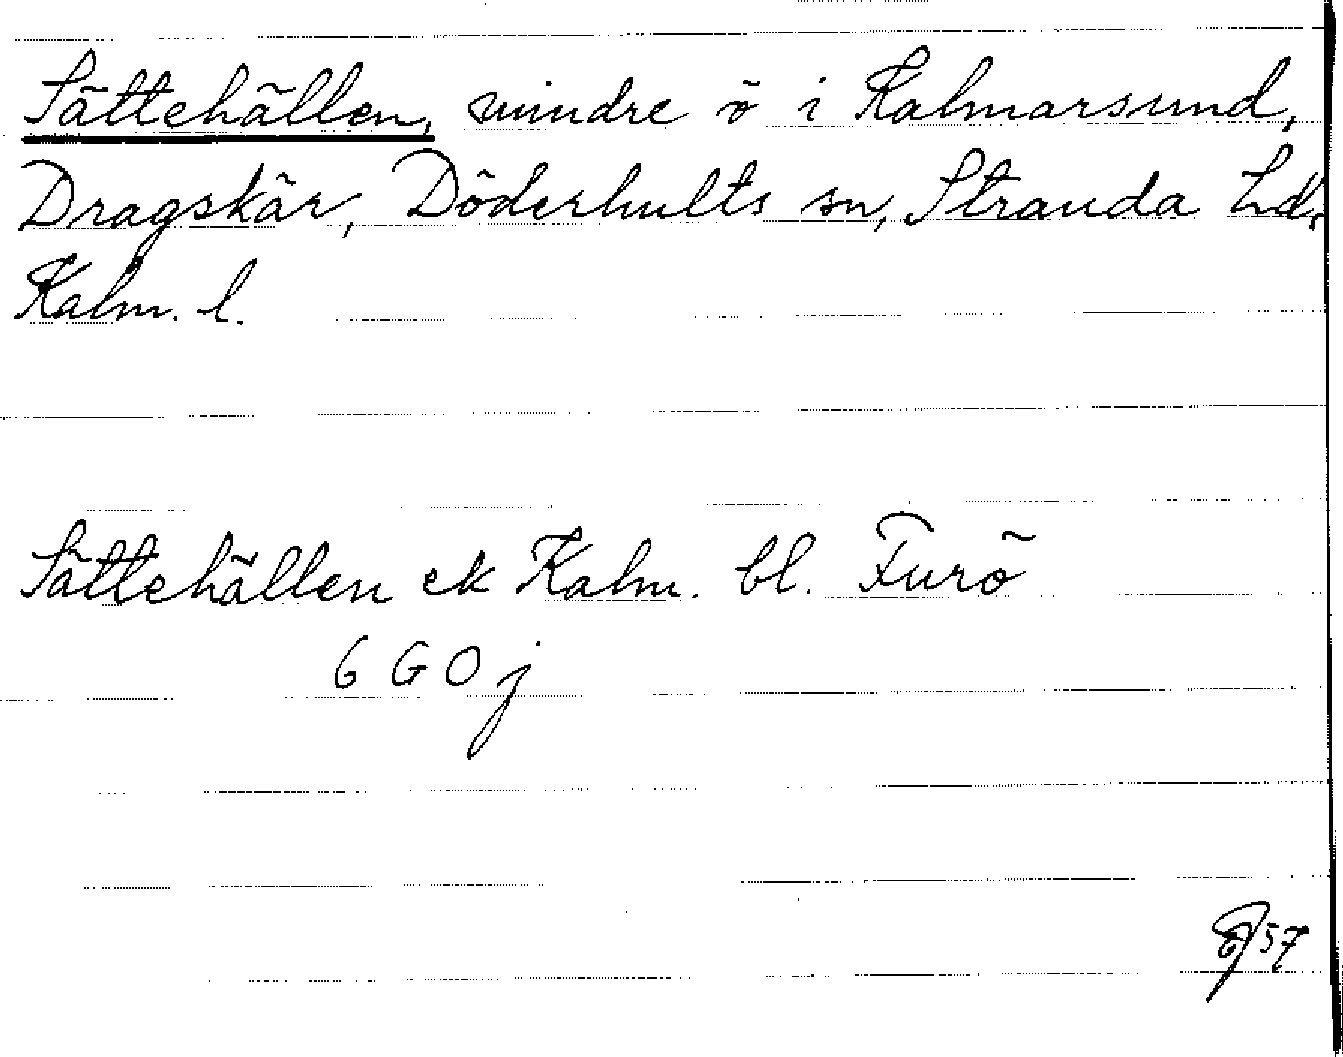 Sättehällen, mindre ö i Kalmarsund,
Dragskär, Döderhults sn, Stranda hd,
Kalm. l.
Sättehällen ek Kalm. bl. Furö
6 G O j
57